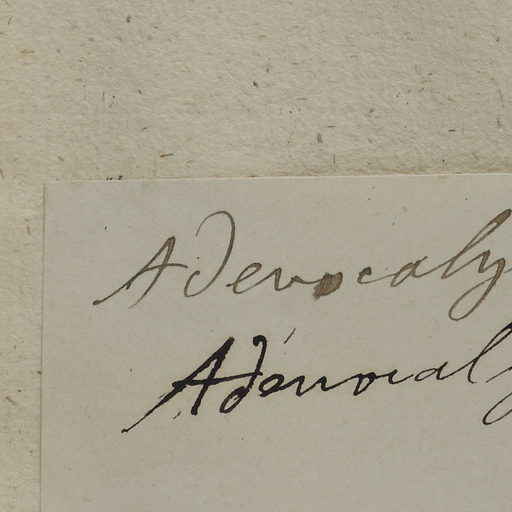 Adenocaly
Adénocaly